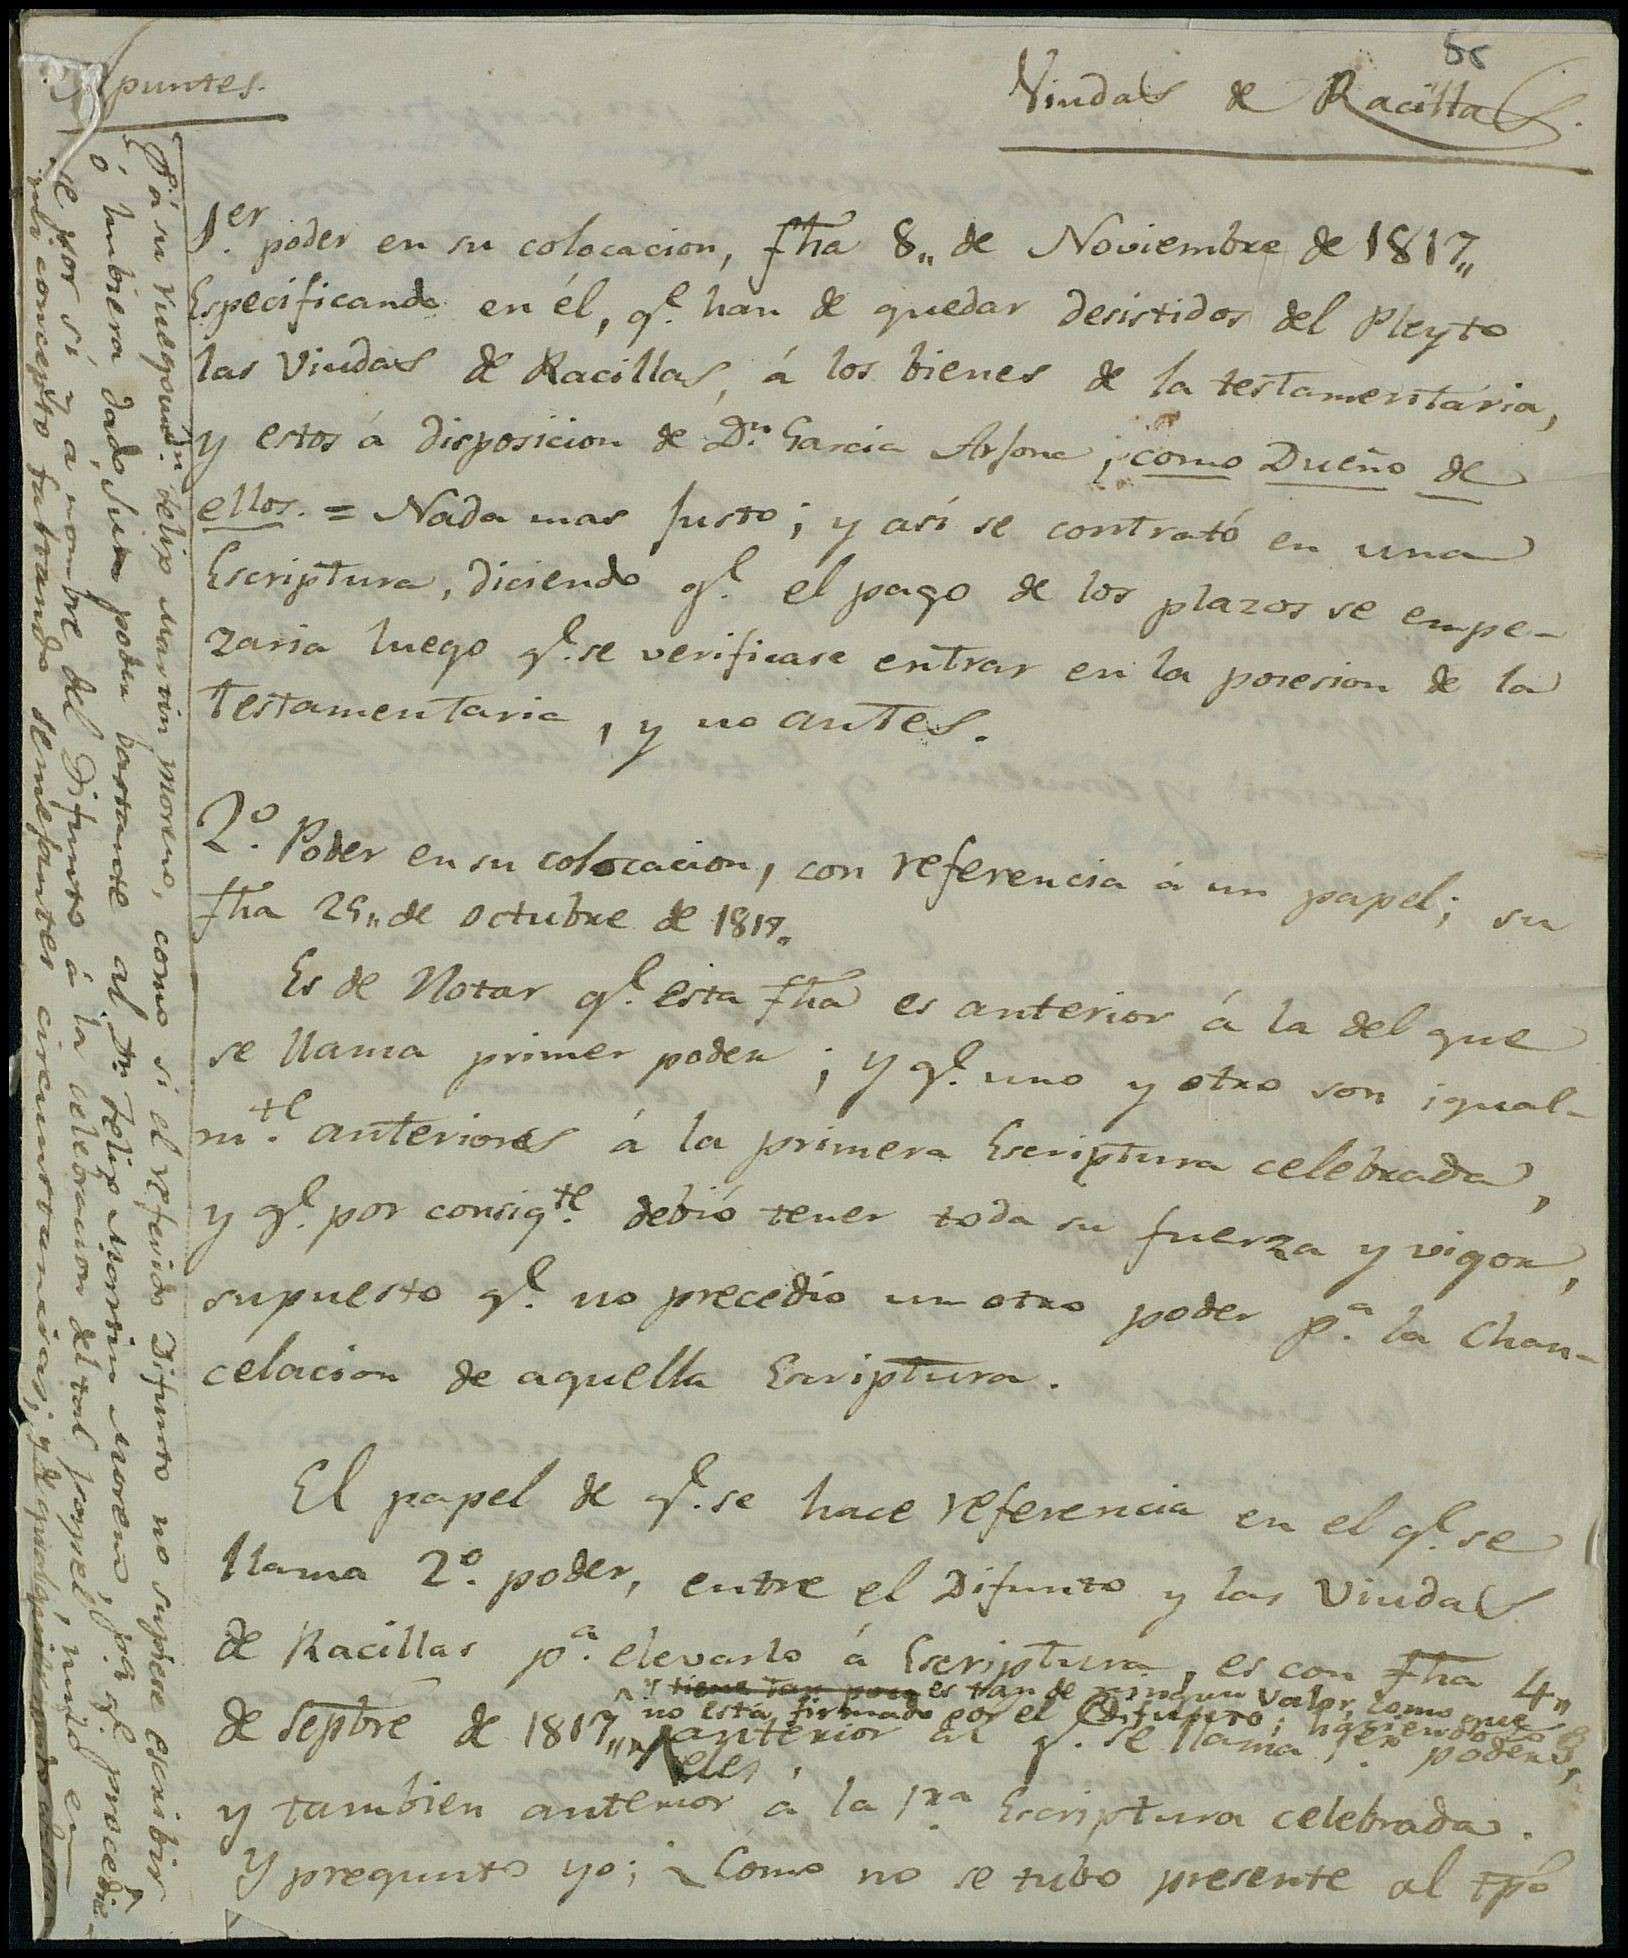 Apuntes.
Viudas de Racillas.
1.er poder en su colocacion, fha 8,, de Noviembre de 1817,,
Especificando en él, q.e han de quedar desistidos del Pleyto
las Viudas de Racillas, á los bienes de la testamentaria,
y estos á disposicion de D.n Garcia, como Dueño de
ellos. = Nada mas justo; y así se contrató en una
Escriptura, diciendo q.e el pago de los plazos se empe-
zaria luego q.e se verificase entrar en la posesion de la
Testamentaria, y no antes.
2.o Poder en su colocacion, con referencia á un papel; su
fha 25,, de Octubre de 1817,,
Es de Notar q.e esta fha es anterior á la del que
se llama primer poder; y q.e uno y otro son igual-
m.te anteriores á la primera Escriptura celebrada,
y q.e por consig.te debió tener toda su fuerza y vigor,
supuesto q.e no precedió un otro poder p.a la Chan-
celacion de aquella Escriptura.
El papel de q.e se hace referencia en el q.e se
llama 2.o poder, entre el Difunto y las Viudas
de Racillas p.a elevarlo á Escriptura, es con fha 4,,
y es tan de ningun valor, como que
no está firmado por el Difunto; haviendolo
de Septbre de 1817,, anterior al q.e se llama 1.er poder,
y tambien anterior á la 1.ra Escriptura celebrada.
Y pregunto yo; ¿Como no se tubo presente al tpo
á su ruego D.n Felip Martin Moreno, como si el referido Difunto no supiese escribir
ó hubiera dado Sum poder bastante al D.n Felip Martin Moreno, p.a q.e procedie-
se por sí y a nombre del Difunto á la celebracion del tal papel, nulo en
mi concepto faltando semejantes circunstancias;